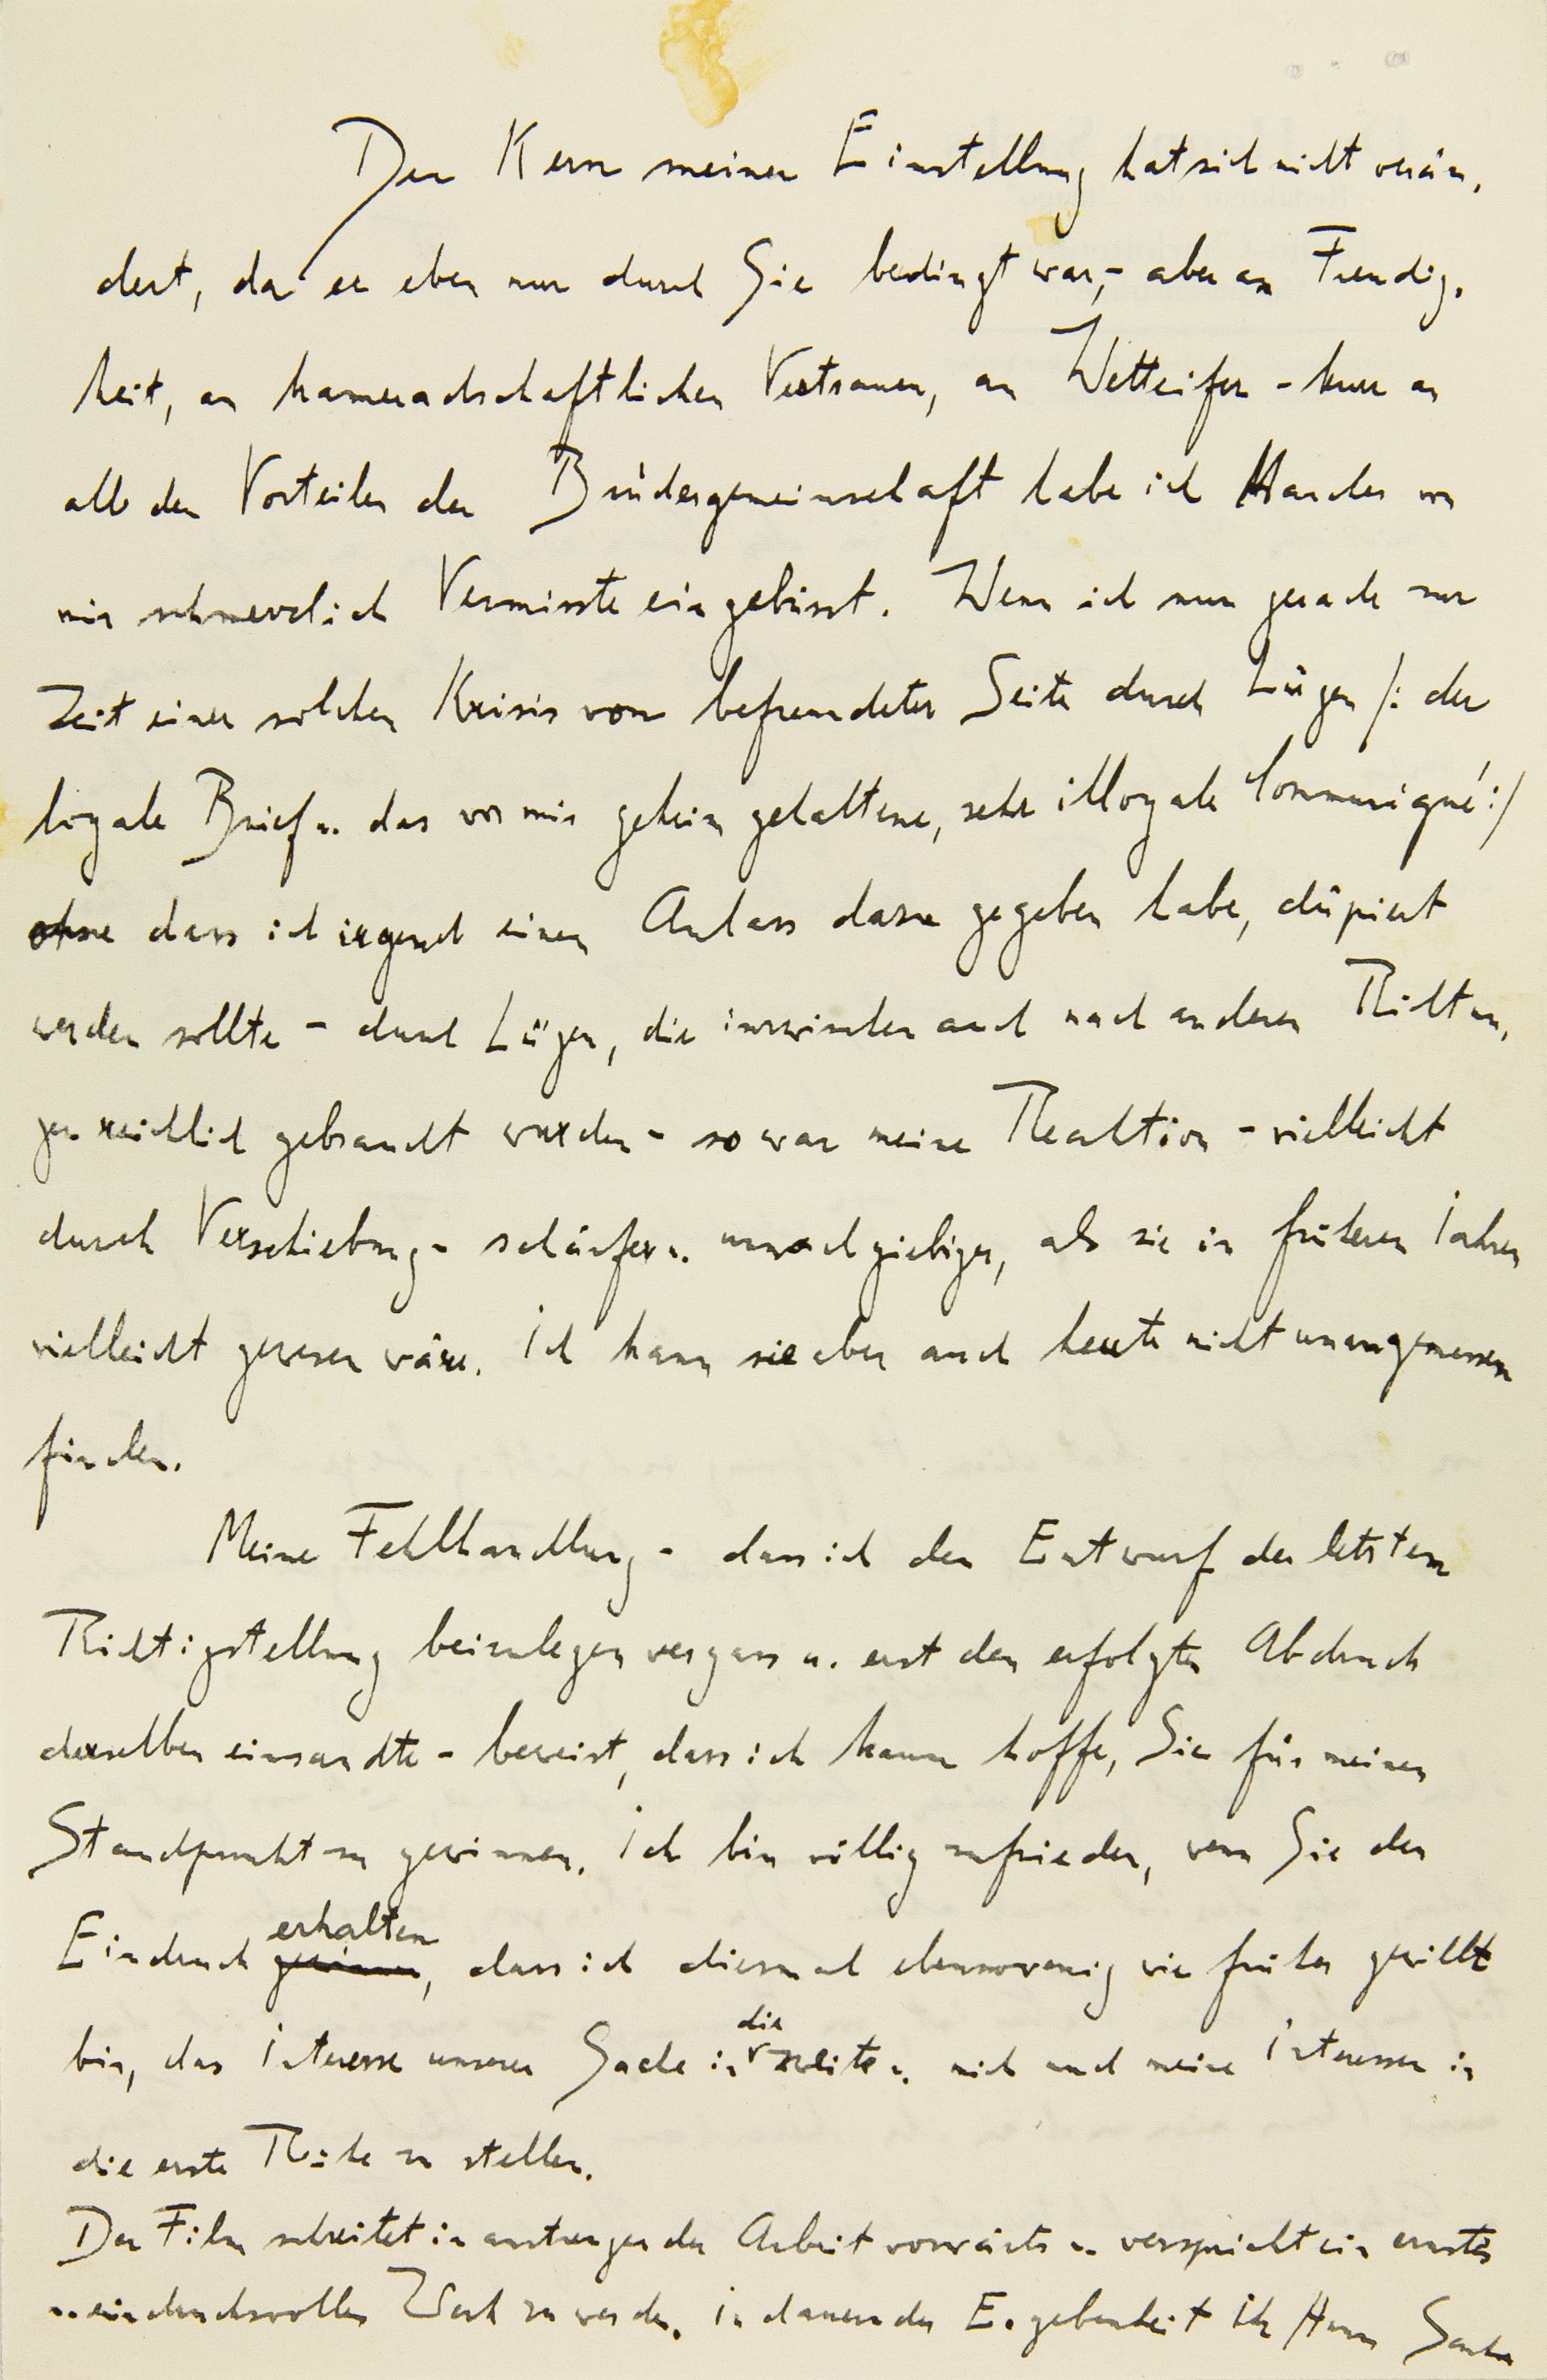 Der Kern meiner Einstellung hat sich nicht verän-
dert, da er eben nur durch Sie bedingt war,- aber an Freudig-
keit, an kameradschaftlichen Vertrauen, an Wetteifer - kurz an
all den Vorteilen der Brüdergemeinschaft habe ich Manches von
mir schmerzlich Vermisste eingebüsst. Wenn ich nun gerade zur
Zeit einer solchen Krisis von befreundeter Seite durch Lügen /: der
loyale Brief u. das vor mir geheim gehaltene, sehr illoyale Communiqué :/
ohne dass ich irgend einen Anlass dazu gegeben habe, düpiert
werden sollte - durch Lügen, die inzwischen auch nach anderen Richtun-
gen reichlich gebraucht wurden - so war meine Reaktion - vielleicht
durch Verschiebung - schärfer u. unnachgiebiger, als sie in früheren Jahren
vielleicht gewesen wäre. Ich kann sie aber auch heute nicht unangemessen
finden.
Meine Fehlhandlung - dass ich den Entwurf der letzten
Richtigstellung beizulegen vergass u. erst den erfolgten Abdruck
derselben einsandte - beweist, dass ich kaum hoffe, Sie für meinen
Standpunkt zu gewinnen. Ich bin völlig zufrieden, wenn Sie den
Eindruck erhalten, dass ich diesmal ebensowenig wie früher gewillt
bin, das Interesse unserer Sache in die zweite u. mich und meine Interessen in
die erste Reihe zu stellen.
Der Film schreitet in anstrengender Arbeit vorwärts u. verspricht ein ernstes
u. eindrucksvolles Werk zu werden. In dauernder Ergebenheit Ihr Hanns Sachs